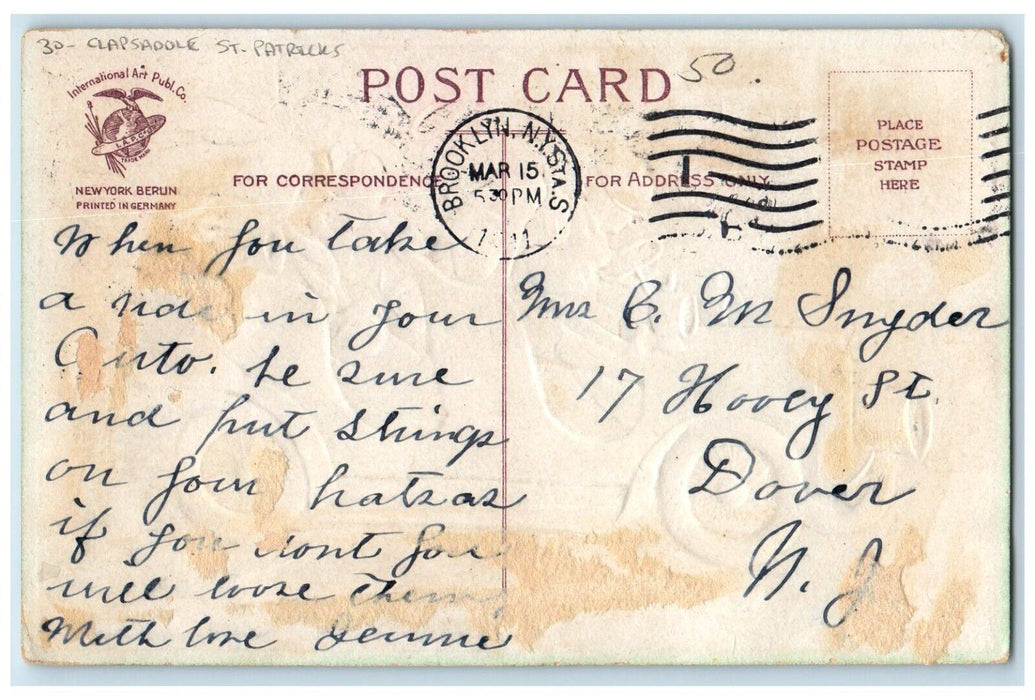 30- CLAPSADDLE ST. PATRICKS
50.
International Art Publ. Co.
I.A.P.CO.
TRADE MARK
NEW YORK BERLIN
PRINTED IN GERMANY
POST CARD
FOR CORRESPONDENCE
FOR ADDRESS ONLY
BROOKLYN, N.Y. STA. S
MAR 15
530 PM
1911
1
PLACE
POSTAGE
STAMP
HERE
When you take
a ride in your
Auto. be sure
and put strings
on your hats as
if you dont you
will loose them
With love Jennie
Mrs C. M Snyder
17 Hovey St.
Dover
N. J